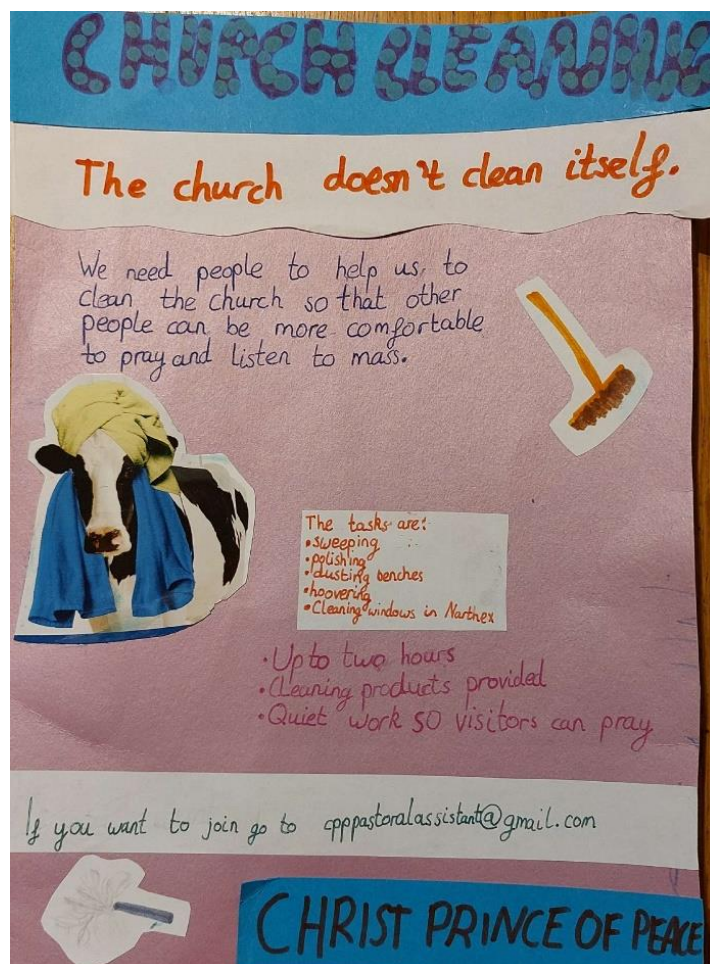 CHURCH CLEANING
The church doesn't clean itself.
We need people to help us, to
clean the church so that other
people can be more comfortable
to pray and listen to mass.
The tasks are:
•sweeping
•polishing
•dusting benches
•hoovering
•Cleaning windows in Narthex
•Up to two hours
•Cleaning products provided
•Quiet work so visitors can pray
If you want to join go to cpppastoralassistant@gmail.com
CHRIST PRINCE OF PEACE